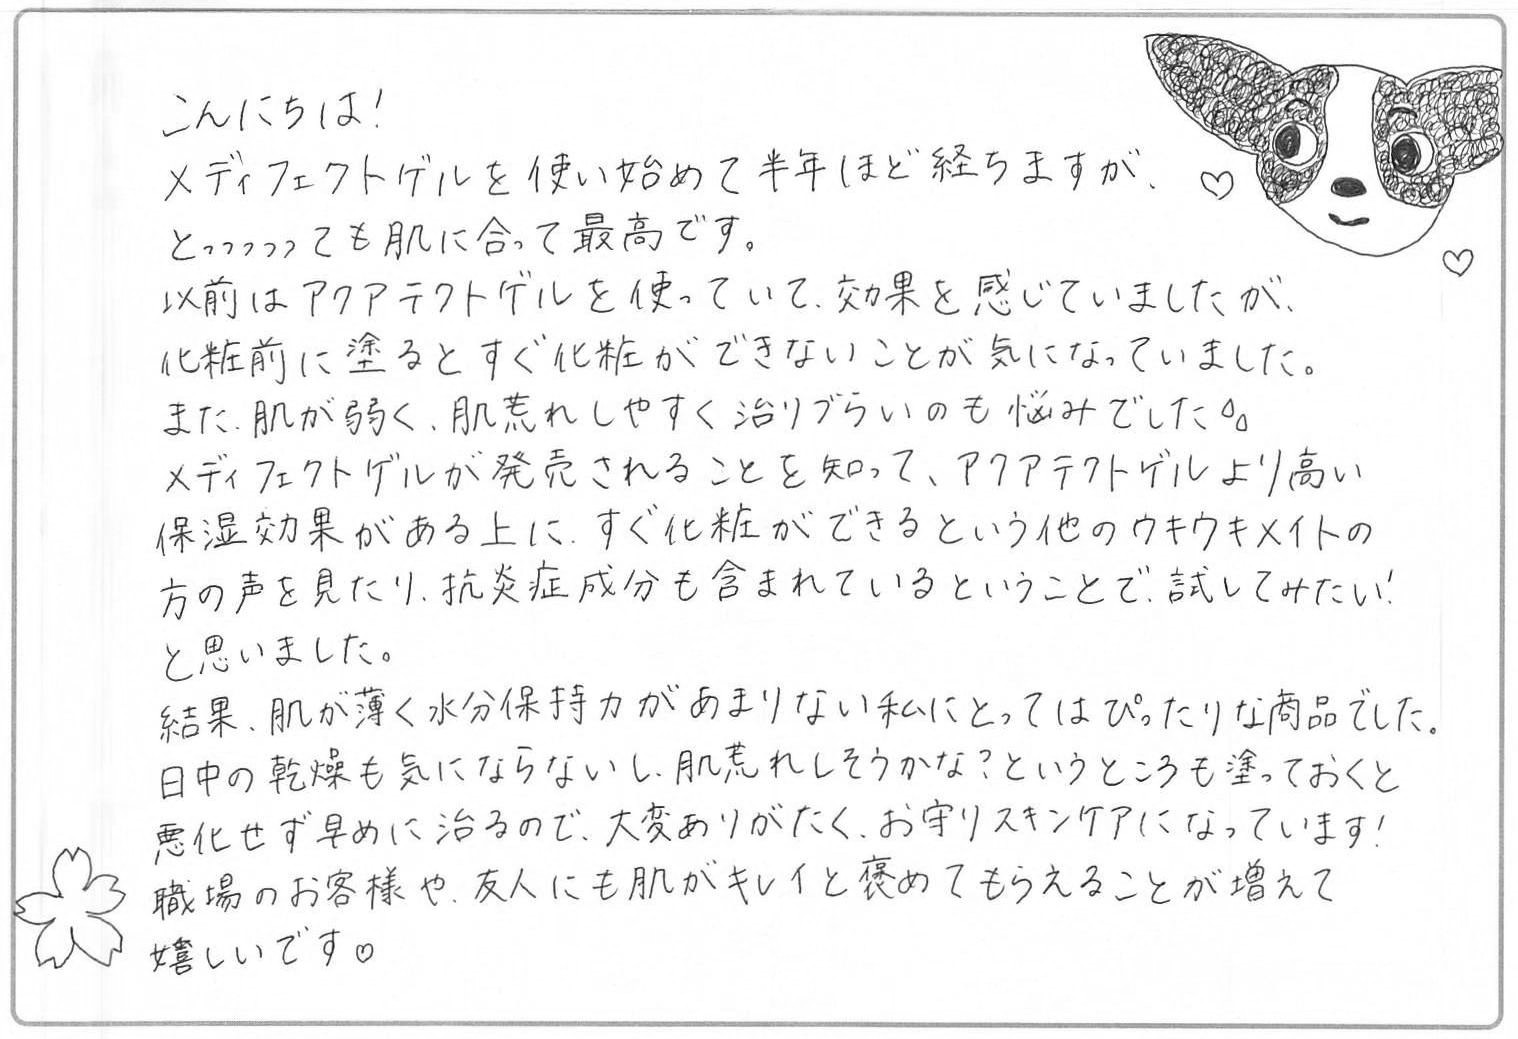 こんにちは!
メディフェクトゲルを使い始めて半年ほど経ちますが、
とっっっっっても肌に合って最高です。
以前はアクアテクトゲルを使っていて、効果を感じていましたが、
化粧前に塗るとすぐ化粧ができないことが気になっていました。
また、肌が弱く、肌荒れしやすく治りづらいのも悩みでした。
メディフェクトゲルが発売されることを知って、アクアテクトゲルより高い
保湿効果がある上に、すぐ化粧ができるという他のウキウキメイトの
方の声を見たり、抗炎症成分も含まれているということで、試してみたい!
と思いました。
結果、肌が薄く水分保持力があまりない私にとってはぴったりな商品でした。
日中の乾燥も気にならないし、肌荒れしそうかな?というところも塗っておくと
悪化せず早めに治るので、大変ありがたく、お守りスキンケアになっています!
職場のお客様や、友人にも肌がキレイと褒めてもらえることが増えて
嬉しいです♡